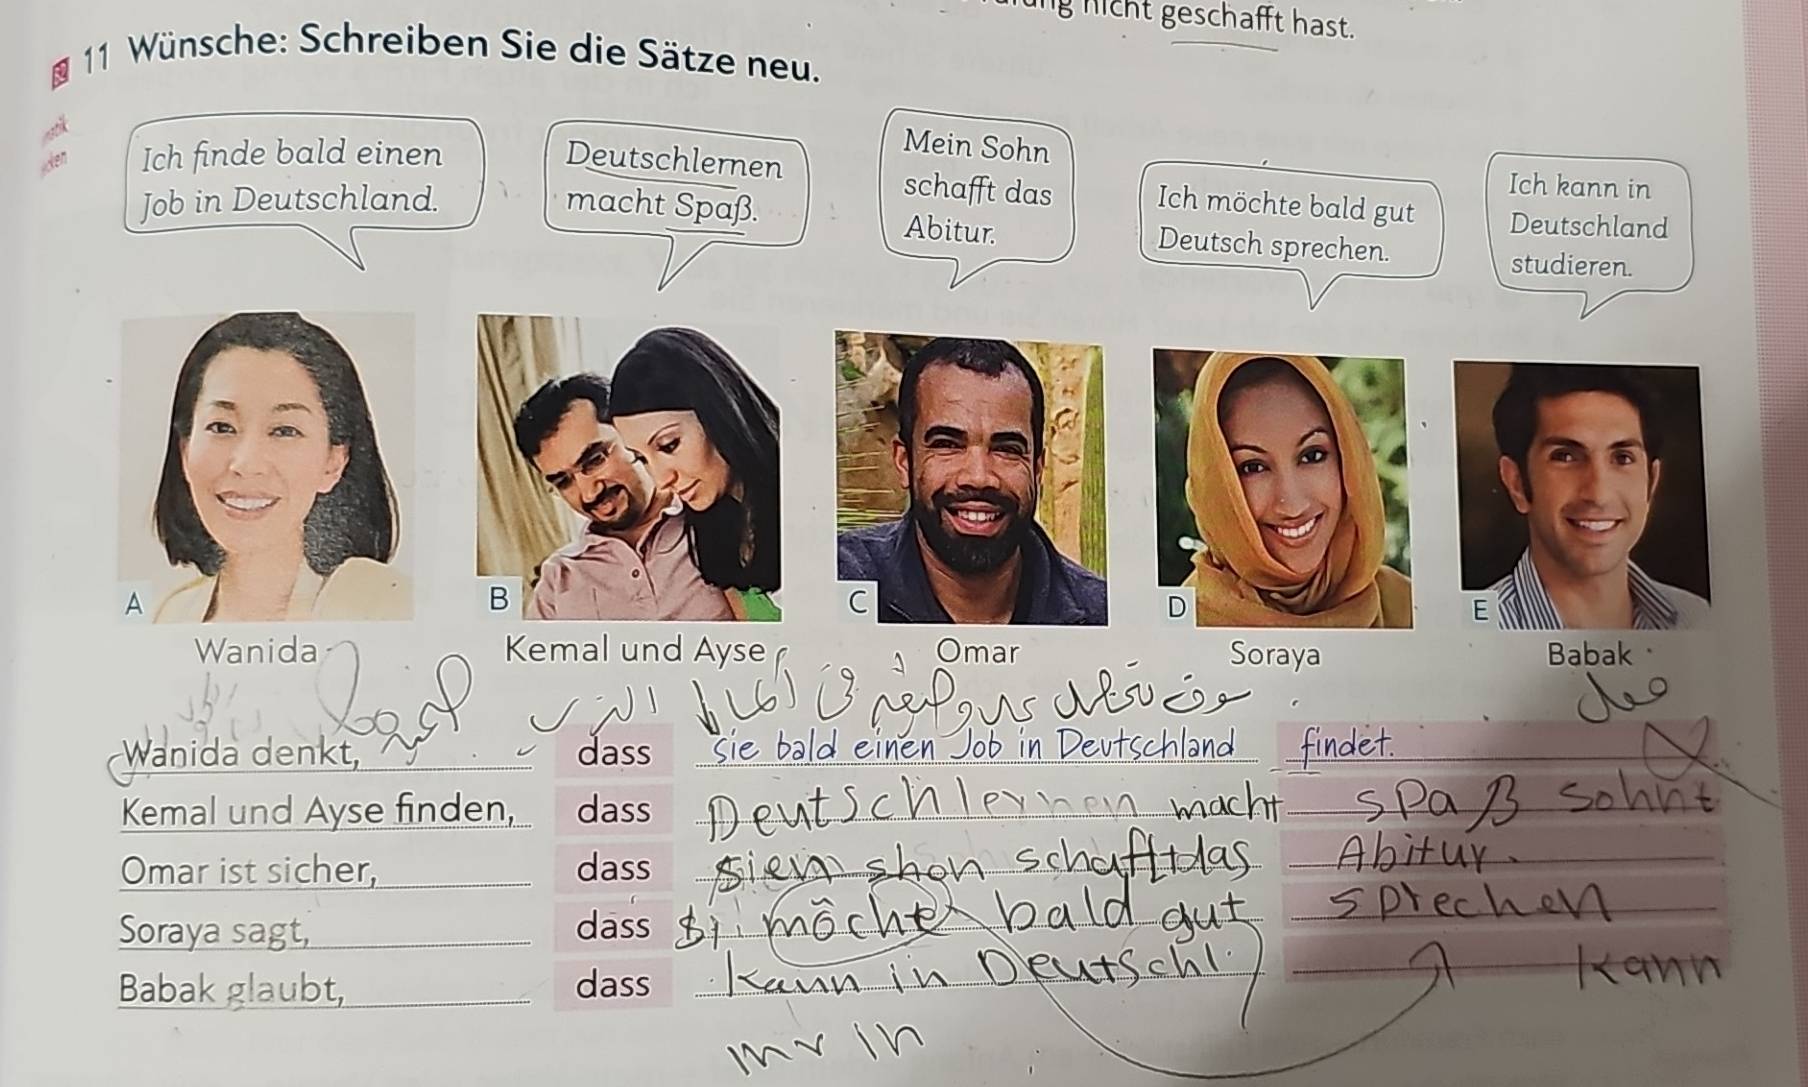 nicht geschafft hast.
11 Wünsche: Schreiben Sie die Sätze neu.
Ich finde bald einen
Job in Deutschland.
Deutschlernen
macht Spaß.
Mein Sohn
schafft das
Abitur.
Ich möchte bald gut
Deutsch sprechen.
Ich kann in
Deutschland
studieren.
A
B
C
D
E
Wanida
Kemal und Ayse
Omar
Soraya
Babak
Wanida denkt, dass sie bald einen Job in Deutschland findet.
Kemal und Ayse finden, dass Deutschlernen macht Spaß Sohnt
Omar ist sicher, dass siein shon schafft das Abitur.
Soraya sagt, dass Si möchte bald gut sprechen
Babak glaubt, dass kann in Deutschl. kann
in